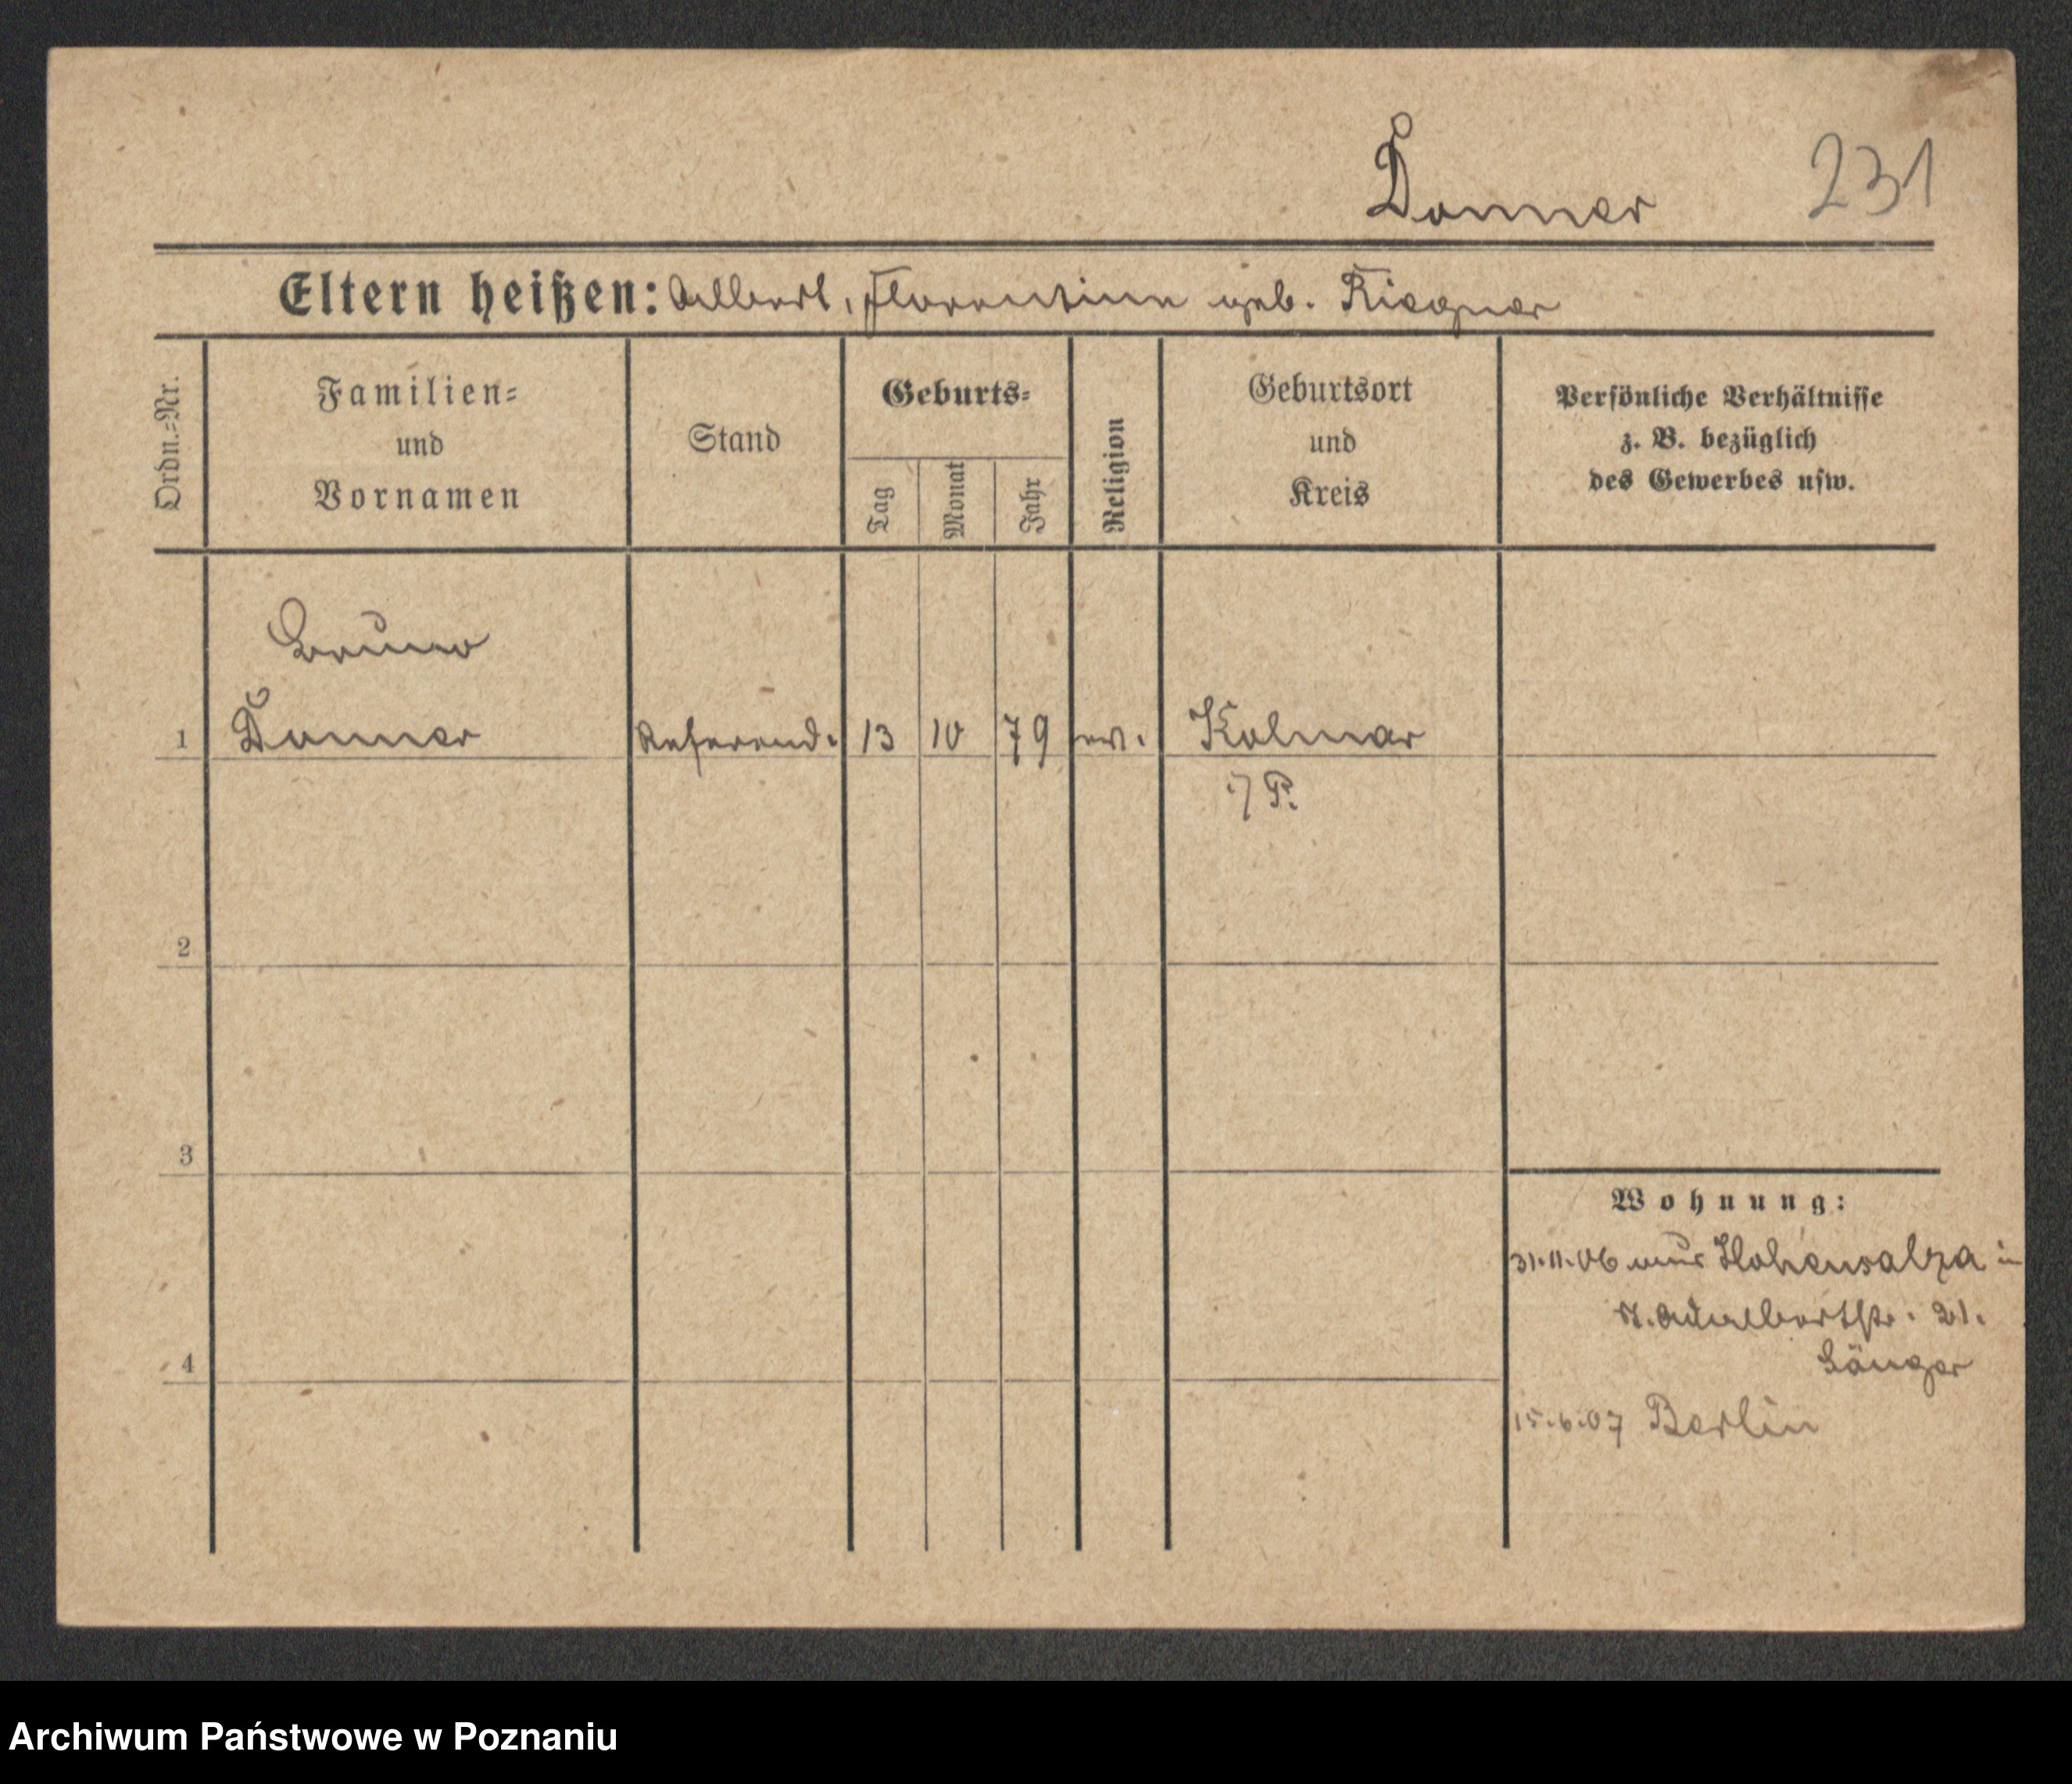 Donner 231
Eltern heißen: Albert, Florentine geb. Riegner
Ordn.=Nr.
Familien=
und
Vornamen
Stand
Geburts=
Tag
Monat
Jahr
Religion
Geburtsort
und
Kreis
Persönliche Verhältnisse
z. B. bezüglich
des Gewerbes usw.
Bruno
1 Donner Referend. 13 10 79 ev. Kolmar
i/P.
2
3
4
Wohnung:
31.11.06 aus Hohensalza in
Adalbertstr. 21.
Länger
15.6.07 Berlin
Archiwum Państwowe w Poznaniu